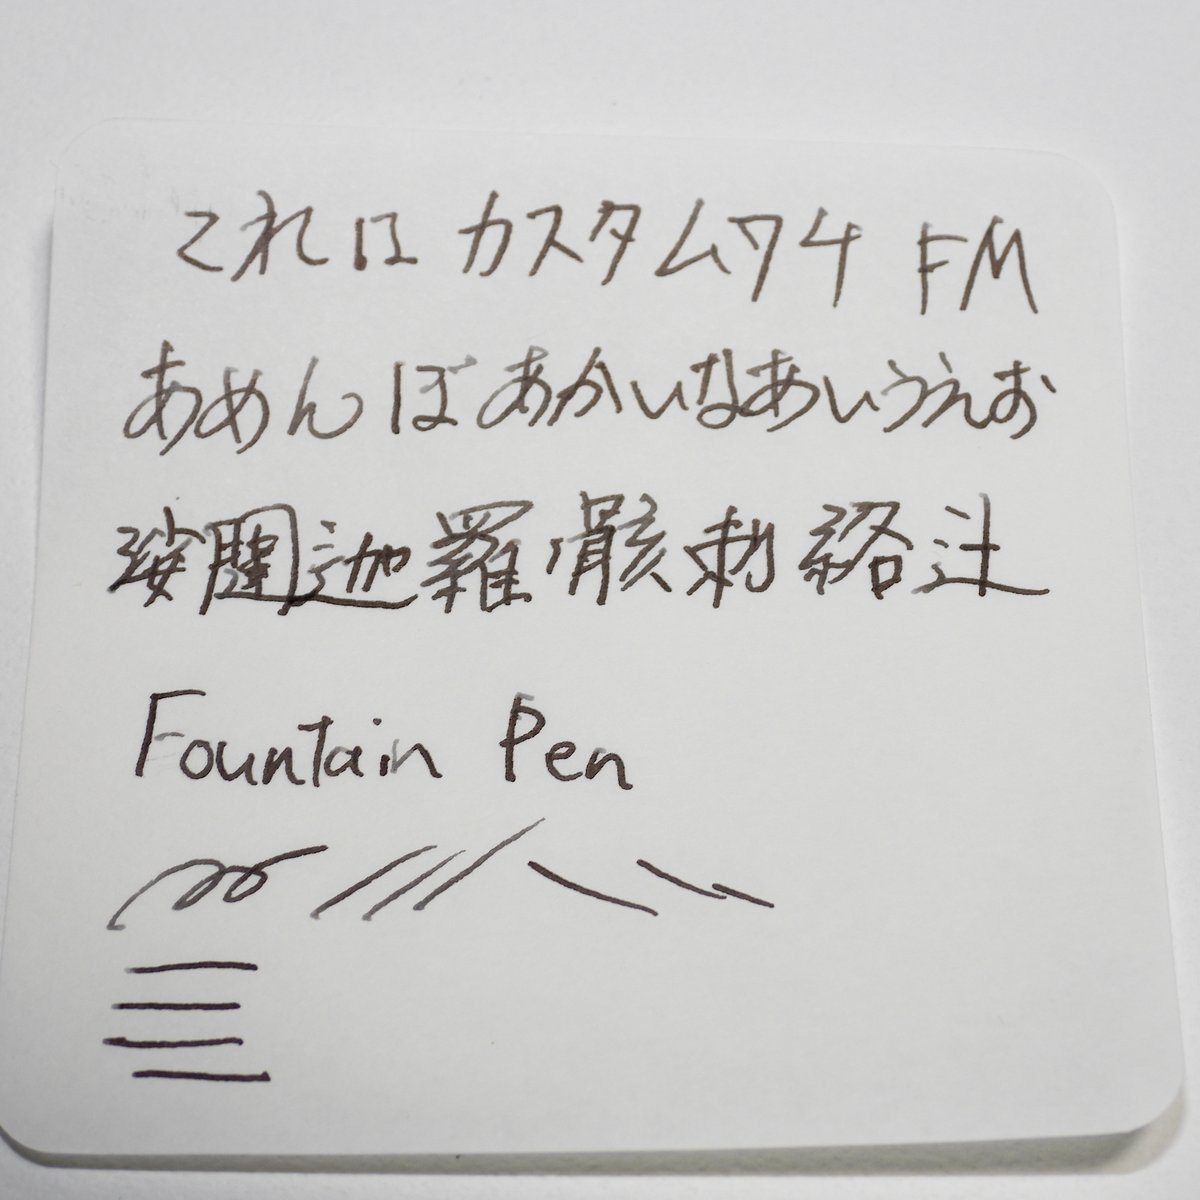 これはカスタム74 FM
あめんぼあかいなあいうえお
迦羅骸刺絡辻
Fountain Pen